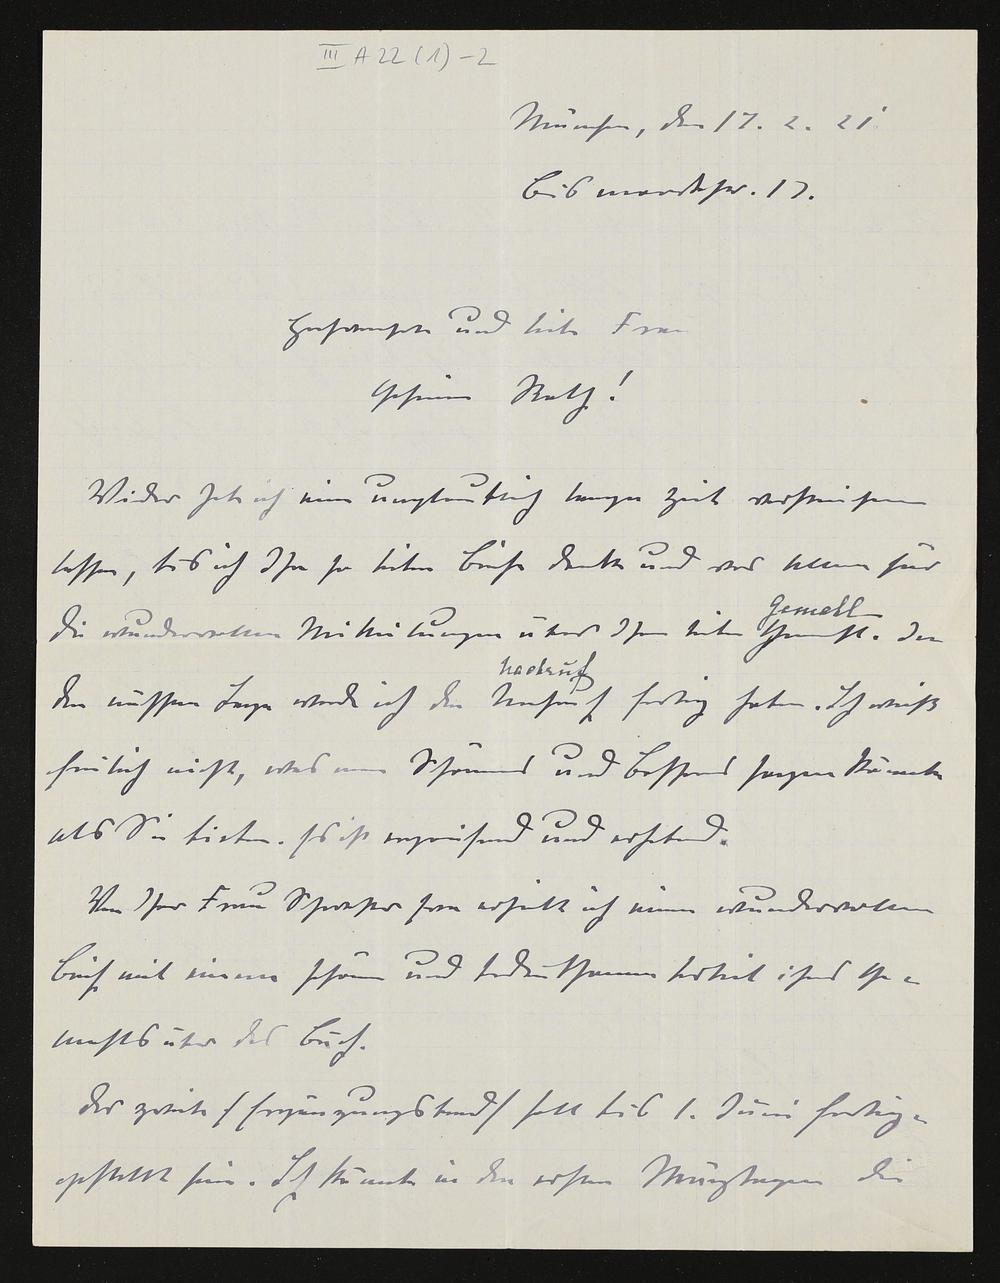 III A 22 (1) - 2
München, den 17. 2. 21.
Bismarckstr. 17.
Hochverehrte und liebe Frau
Geheim Rath!
Wieder habe ich eine unglaublich lange Zeit verstreichen
lassen, bis ich Ihnen für lieben Brief danke und vor allem für
die wundervollen Mitteilungen über Ihren lieben Gemahl. In
Gemahl
den nächsten Tagen werde ich den Nachruf fertig haben. Ich weiß
Nachruf
freilich nicht, was man Schöneres und Besseres sagen könnte
als Sie bieten. Es ist ergreifend und erhebend.
Von Ihrer Frau Schwester erhielt ich einen wundervollen
Brief mit einem schönen und bedeutsamen Urteil ihres Ge-
mahls über das Buch.
Der zweite (Ergänzungsband) soll bis 1. Juni fertig-
gestellt sein. Ich könnte in den ersten Märztagen die